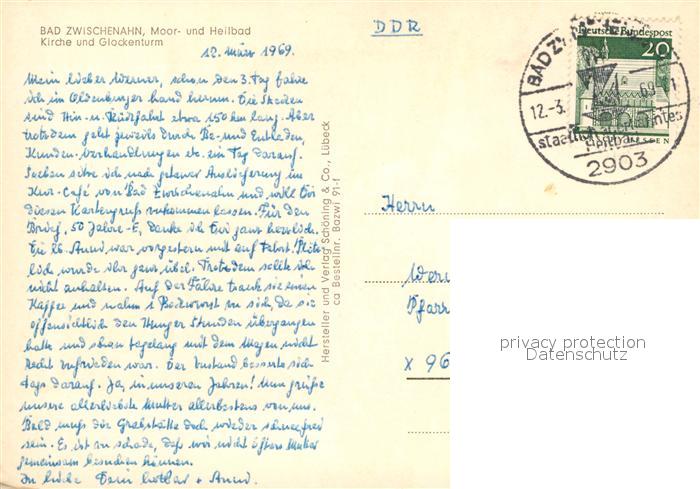 BAD ZWISCHENAHN, Moor- und Heilbad
Kirche und Glockenturm
DDR
12. März 1969.
Mein lieber Werner, schon den 3. Tag fahre
ich im Oldenburger Land herum. Die Strecken
sind Hin- u. Rückfahrt etwa 150 km lang. Aber
trotzdem geht jeweils durch Be- und Entladen,
Kunden-Verhandlungen etc. ein Tag darauf.
Soeben sitze ich nach getaner Auslieferung im
Kur-Café von Bad Zwischenahn und will Dir
diesen Kartengruß zukommen lassen. Für den
Brief, 50 Jahre-E, danke ich Dir ganz herzlich.
Die lb. Anni war vorgestern mit auf Fahrt! Plötz-
lich wurde ihr ganz übel. Trotzdem sollte ich
nicht anhalten. Auf der Fähre trank sie einen
Kaffee und nahm 1 Bockwurst zu sich, da sie
offensichtlich den Hunger Stunden übergangen
hatte und schon tagelang mit dem Magen nicht
recht zufrieden war. Der Zustand besserte sich
tags darauf. Ja, in unseren Jahren! Nun grüße
unsere allerliebste Mutter allerbestens von uns.
Bald muß die Grabstätte doch wieder schneefrei
sein. Es ist zu schade, daß wir nicht öfters Mutter
gemeinsam besuchen können.
In Liebe Dein Lothar + Anni.
Hersteller und Verlag Schöning & Co., Lübeck
ca Bestellnr. Bazwi 91-1
Deutsche Bundespost
20
BAD
12.-3. 69-
staatlich
2903
Herrn
Wern
Pfarr
X 96
privacy protection
Datenschutz